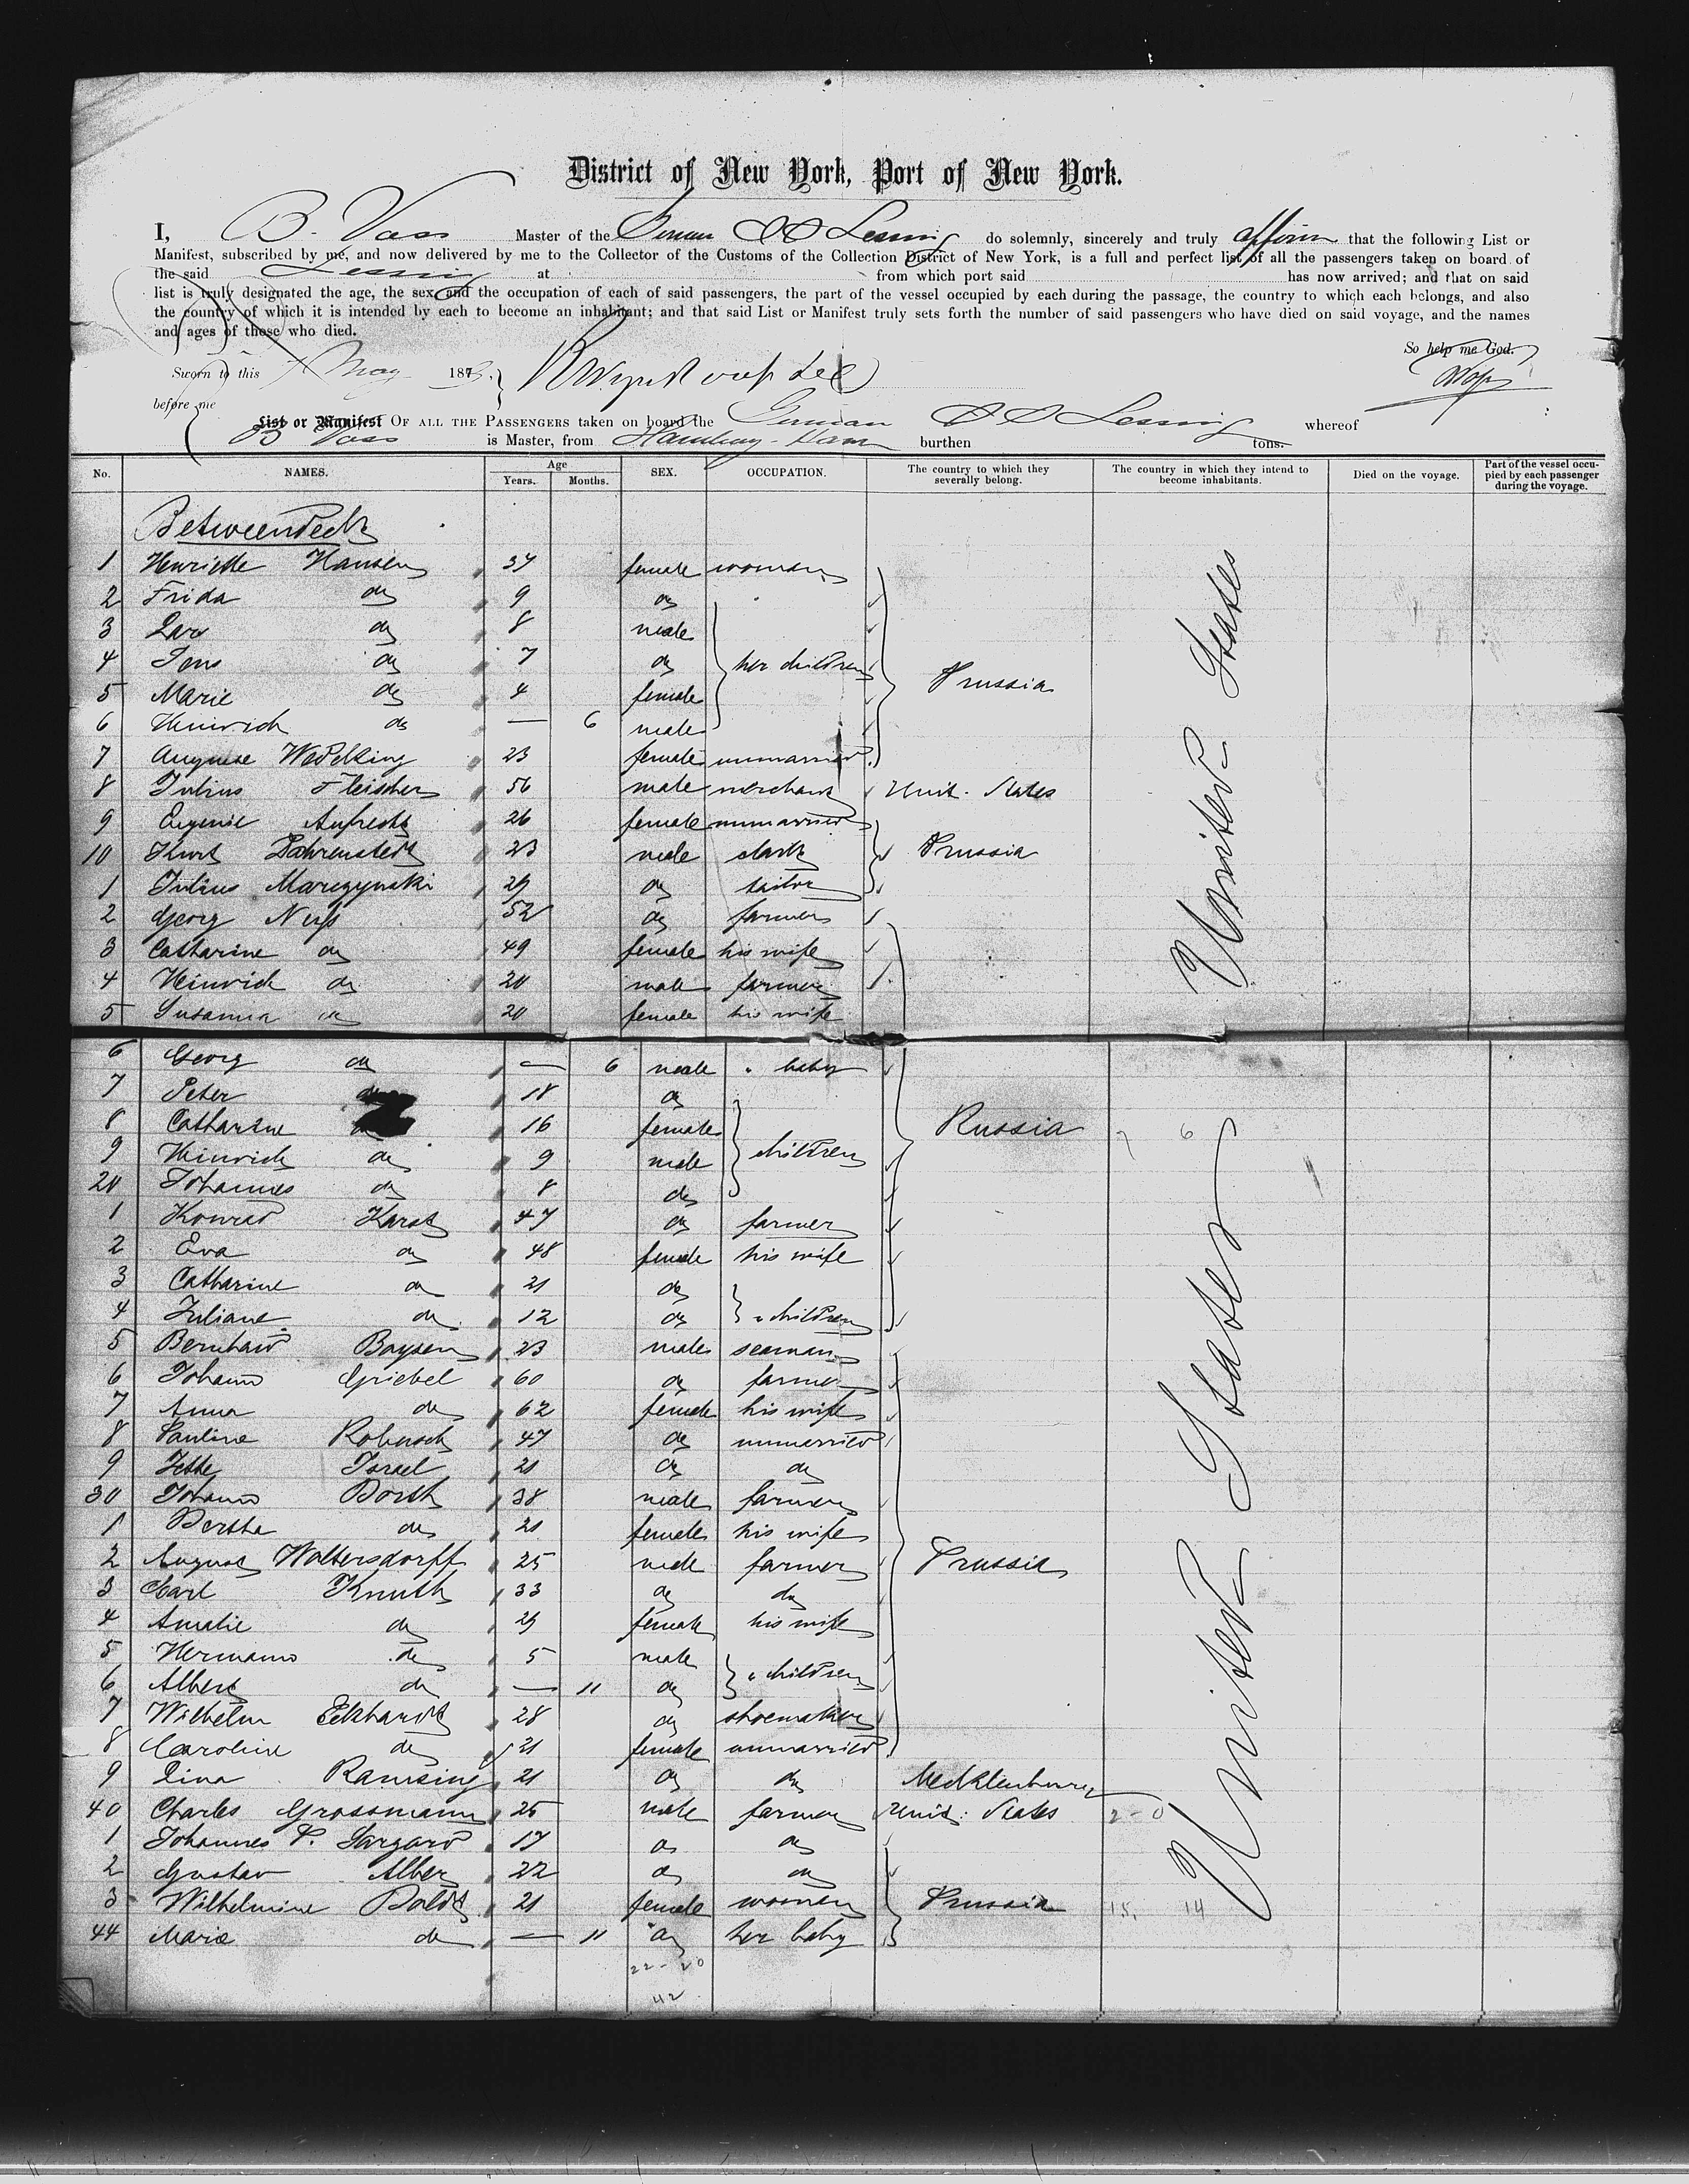 District of New York, Port of New York.
I, B. Voss Master of the German SS Lessing do solemnly, sincerely and truly affirm that the following List or
Manifest, subscribed by me, and now delivered by me to the Collector of the Customs of the Collection District of New York, is a full and perfect list of all the passengers taken on board of
the said Lessing at from which port said has now arrived; and that on said
list is truly designated the age, the sex and the occupation of each of said passengers, the part of the vessel occupied by each during the passage, the country to which each belongs, and also
the country of which it is intended by each to become an inhabitant; and that said List or Manifest truly sets forth the number of said passengers who have died on said voyage, and the names
and ages of those who died.
So help me God.
Sworn to this 7 May 187
before me
List or Manifest OF ALL THE PASSENGERS taken on board the German SS Lessing whereof
B Voss is Master, from burthen tons.
No. NAMES. Age Years. Months. SEX. OCCUPATION. The country to which they severally belong. The country in which they intend to become inhabitants. Died on the voyage. Part of the vessel occupied by each passenger during the voyage.
Betweendeck
1 Henriette Hansen 37 female woman
2 Frida do 9 do
3 do 8 male
4 Jens do 7 do her children
5 Marie do 4 female Prussia
6 Heinrich do — 6 male
7 Auguste Wedelking 23 female unmarried
8 Julius Fleischer 56 male merchant Unit. States
9 Eugenie Aufrecht 26 female unmarried
10 Kurt Fahrenstedt 23 male clark Prussia
1 Julius Marczynski 29 do tailor
2 Georg Nuss 52 do farmer
3 Catharine do 49 female his wife
4 Heinrich do 20 male farmer
5 Susanna do 20 female his wife
6 Georg do — 6 male baby
7 Peter do 18 do
8 Catharine 16 female Russia 7 6
9 Heinrich do 9 male children
20 Johannes do 8 do
1 Konrad Karst 47 do farmer
2 Eva do 48 female his wife
3 Catharine do 21 do
4 Juliane do 12 do children
5 Bernhard Boysen 23 male seaman
6 Johann Griebel 60 do farmer
7 Anna do 62 female his wife
8 Pauline 47 do unmarried
9 Jette Israel 21 do do
30 Johann Borth 38 male farmer
1 Bertha do 21 female his wife
2 August Woltersdorff 25 male farmer Prussia
3 Carl Knuth 33 do do
4 Amalie do 29 female his wife
5 Hermann do 5 male
6 Albert do — 11 do children
7 Wilhelm Eckhardt 28 do shoemaker
8 Caroline do 21 female unmarried
9 Lina Ramsing 21 do do Mecklenburg
40 Charles Grossmann 25 male farmer Unit: States 2-0
1 Johannes P. 17 do do
2 Gustav Albers 22 do do
3 Wilhelmine Boldt 21 female woman Prussia 15. 14
44 Marie do — 11 do her baby
22-20
42
United States
United States